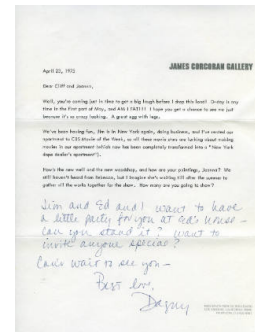 JAMES CORCORAN GALLERY
April 22, 1975
Dear Cliff and Joanne,
Well, you're coming just in time to get a big laugh before I drop this load! D-day is any
time in the first part of May, and AM I FAT!!! I hope you get a chance to see me just
because it's so crazy looking. A great egg with legs.
We've been having fun, Jim is in New York again, doing business, and I've rented our
apartment to CBS Movie of the Week, so all these movie stars are lurking about making
movies in our apartment (which now has been completely transformed into a "New York
dope dealer's apartment").
How's the new mall and the new woodshop, and how are your paintings, Joanne? We
still haven't heard from Rebecca, but I imagine she's waiting till after the summer to
gather all the works together for the show. How many are you going to show?
Jim and Ed and I want to have
a little party for you at Ed's house -
Can you stand it? Want to
invite anyone special?
Can't wait to see you -
Best love,
Dagny